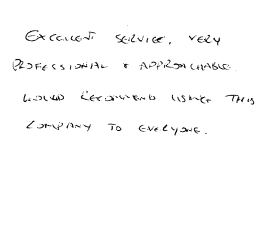 EXCELLENT SERVICE, VERY
PROFESSIONAL & APPROACHABLE
WOULD RECOMMEND USING THIS
COMPANY TO EVERYONE.